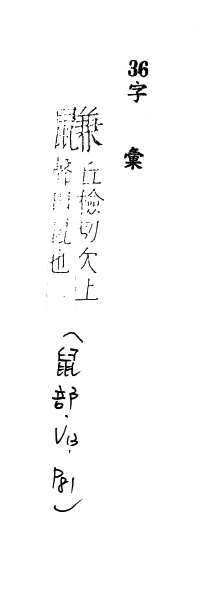 36字彙
鼸
丘檢切欠上
聲田鼠也
(鼠部.V13,P81)